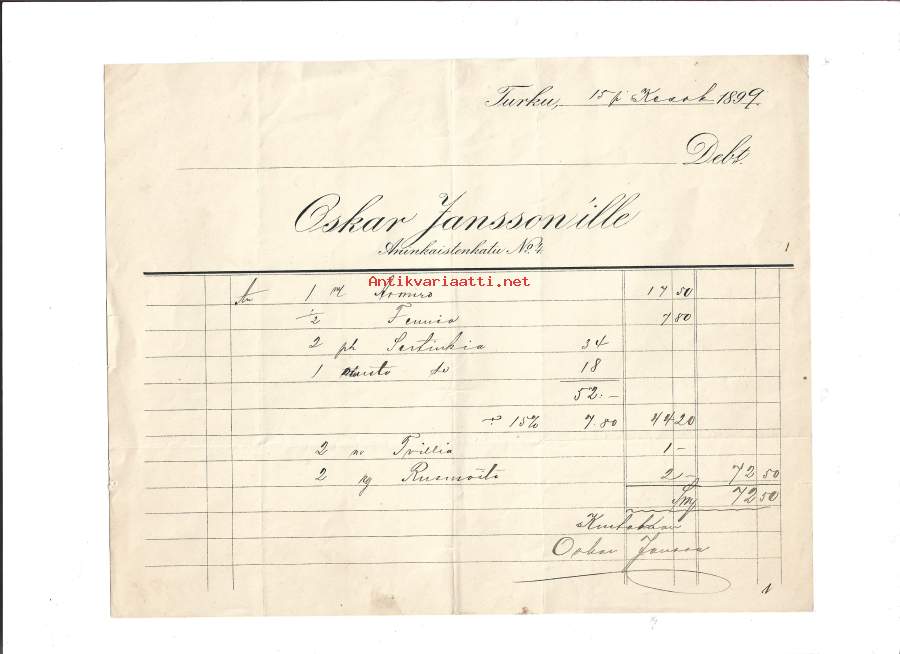 Turku, 15 p. Kesäk 1899.
Debt.
Oskar Jansson'ille
Aninkaistenkatu No. 4.
1
Antikvariaatti.net
1 17 50
1/2 Fennia 7 80
2 ph Sertinkia 34
1 musta do 18
52.-
÷ 15% 7.80 44 20
2 Trillia 1 -
2 kg 2 - 72 50
Smk 72 50
Kuitataan
Oskar Jansson
1